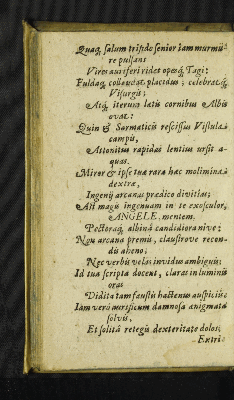 Quaq́; salum trifido senior iam murmure pulsans
Vires auriferi ridet opesq́; Tagi:
Fuldaq́; collaudat placidus; celebratq́;
Visurgis;
Atq́; iterum latis cornibus Albis
ovat:
Quin & Sarmaticis rescissus Vistula
campis,
Attonitus rapidas lentius ursit a-
quas.
Miror & ipse tua rara hæc molimina
dextræ,
Ingenij arcanas prædico divitias;
Ast magis ingenuam in te exosculor,
ANGELE, mentem.
Pectoraq́; albinâ candidiora nive:
Non arcana premis, claustrove recon-
dis aheno;
Nec verbis velas invidus ambiguis;
Id tua scripta docent, claras in luminis
oras
Didita tam faustis hactenus auspiciis:
Iam verò aurificum damnosa ænigmata
solvis,
Et solitâ retegis dexteritate dolos,
Extri-